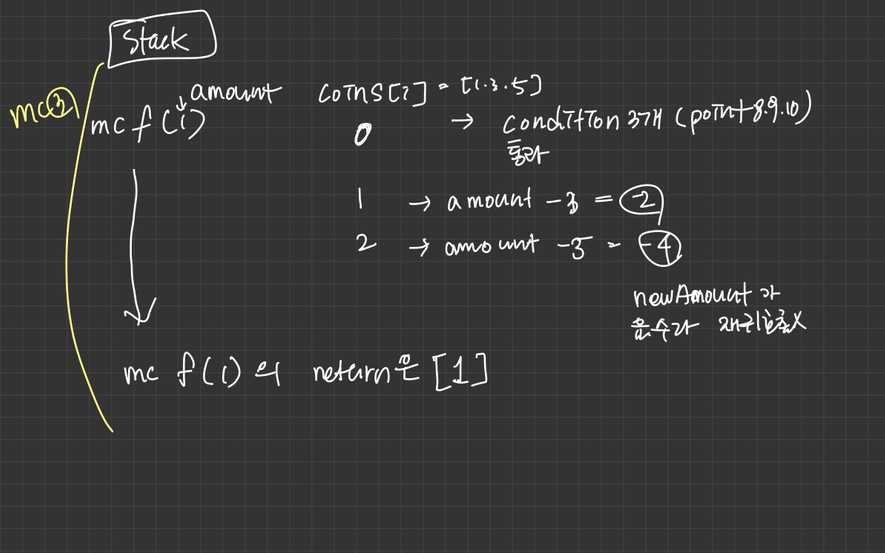 Stack
mc②
amount
mc f(i)
coins[i] = [1.3.5]
0 → condition 3개 (point 8.9.10)
통과
1 → amount -3 = -2
2 → amount -5 = -4
newAmount가
음수라 재귀호출X
mc f(1)의 return은 [1]